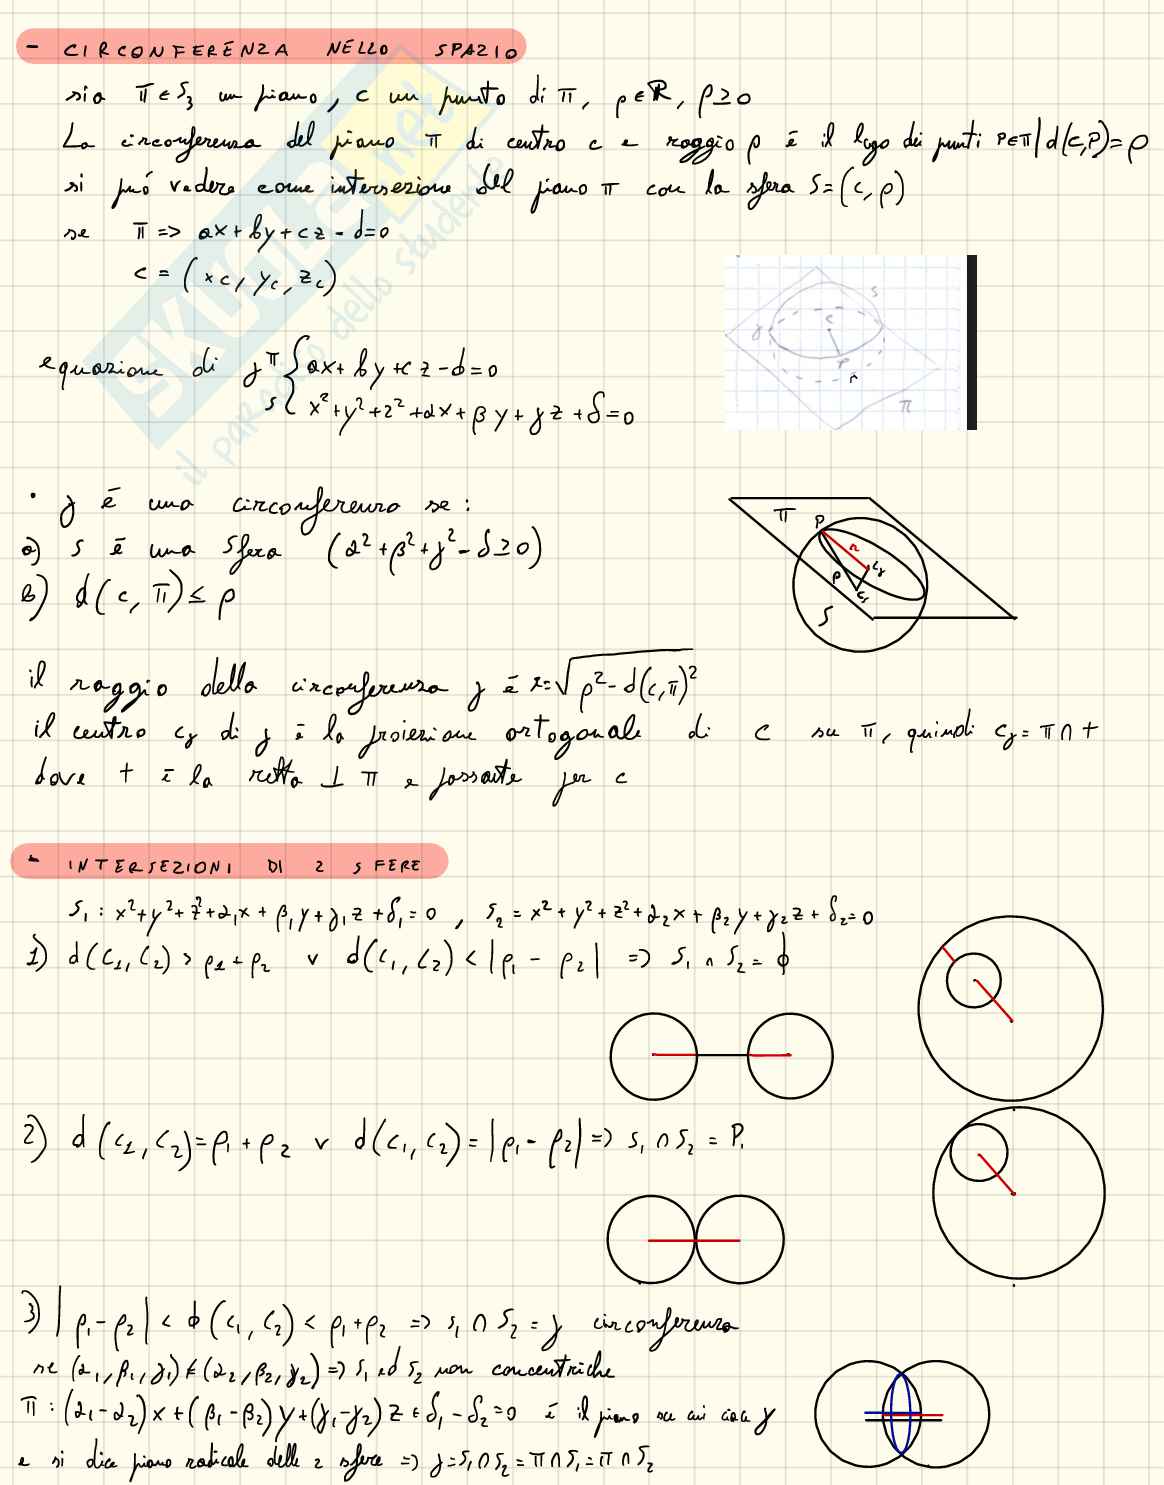 - CIRCONFERENZA NELLO SPAZIO
sia π ∈ S₃ un piano, c un punto di π, ρ∈ℝ, ρ≥0
La circonferenza del piano π di centro c e raggio ρ è il logo dei punti P∈π | d(c,P)=ρ
si può vedere come intersezione del piano π con la sfera S=(c,ρ)
se π => ax+by+cz-d=0
c = (xc, yc, zc)
equazione di γ π { ax+by+cz-d=0
s { x²+y²+z²+αx+βy+γz+δ=0
• γ è una circonferenza se:
a) s è una sfera (α²+β²+γ²-δ≥0)
b) d(c,π)≤ρ
il raggio della circonferenza γ è r=√ρ²-d(c,π)²
il centro cγ di γ è la proiezione ortogonale di c su π, quindi cγ=π∩t
dove t è la retta ⊥ π e passante per c
- INTERSEZIONI DI 2 SFERE
S₁: x²+y²+z²+α₁x+β₁y+γ₁z+δ₁=0, S₂=x²+y²+z²+α₂x+β₂y+γ₂z+δ₂=0
1) d(C₁,C₂)>ρ₁+ρ₂ ∨ d(c₁,c₂)<|ρ₁-ρ₂| => S₁∩S₂=ϕ
2) d(c₁,C₂)=ρ₁+ρ₂ ∨ d(c₁,c₂)=|ρ₁-ρ₂| => S₁∩S₂=P₁
3) |ρ₁-ρ₂|<d(c₁,c₂)<ρ₁+ρ₂ => S₁∩S₂=γ circonferenza
se (α₁,β₁,γ₁)≠(α₂,β₂,γ₂) => S₁ ed S₂ non concentriche
π: (α₁-α₂)x+(β₁-β₂)y+(γ₁-γ₂)z+δ₁-δ₂=0 è il piano su cui giace γ
e si dice piano radicale delle 2 sfere => γ=S₁∩S₂=π∩S₁=π∩S₂
SKUOLA.net
il paradiso dello studente